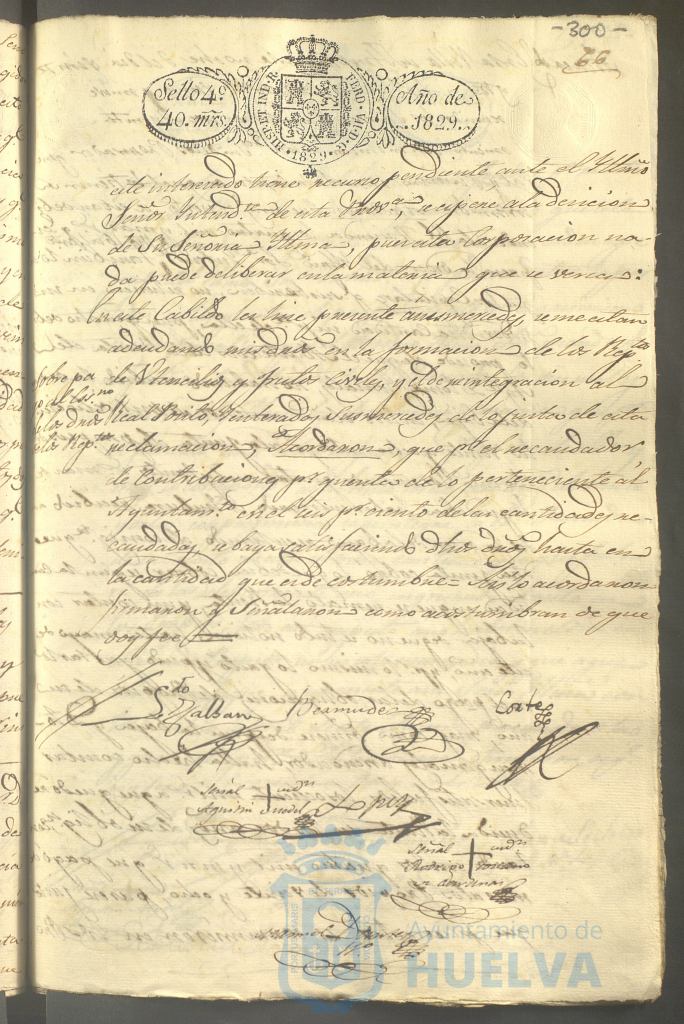 -300-
66
Sello 4º
40. mrs.
HISP. ET IND. R. FERD. VII. D. G.
1829
Año de
1829.
este interesado tiene recurso pendiente ante el Yltmo
Señor Intend.te de esta Prov.a, se espere a la decision
de Su Señoria Yltma, pues esta Corporacion na-
da puede deliberar en la materia que se versa:
En este Cabildo les hice presente a sus mercedes, se me estan
adeudando mis dros en la formacion de los Rep.tos
Sobre pa
de Utencilios y frutos Civiles, y el de reintegracion al
de los dros
Real Posito, Y enterados Sus mercedes de lo justo de esta
de los Rep.tos
reclamacion, Acordaron, que p.r el recaudador
de Contribuciones p.r quenta de lo perteneciente al
Ayuntam.to en el seis p.r ciento de las cantidades re-
caudadas, se baya satisfaciendo dhos dros hasta en
la cantidad que es de costumbre = Asi lo acordaron
firmaron y Señalaron como acostumbran de que
doy fee
Galban
Bermudez
Corte
Señal +
Agustin
Lopez
Señal +
Rodrigo
de
Manuel
Ayuntamiento de
HUELVA